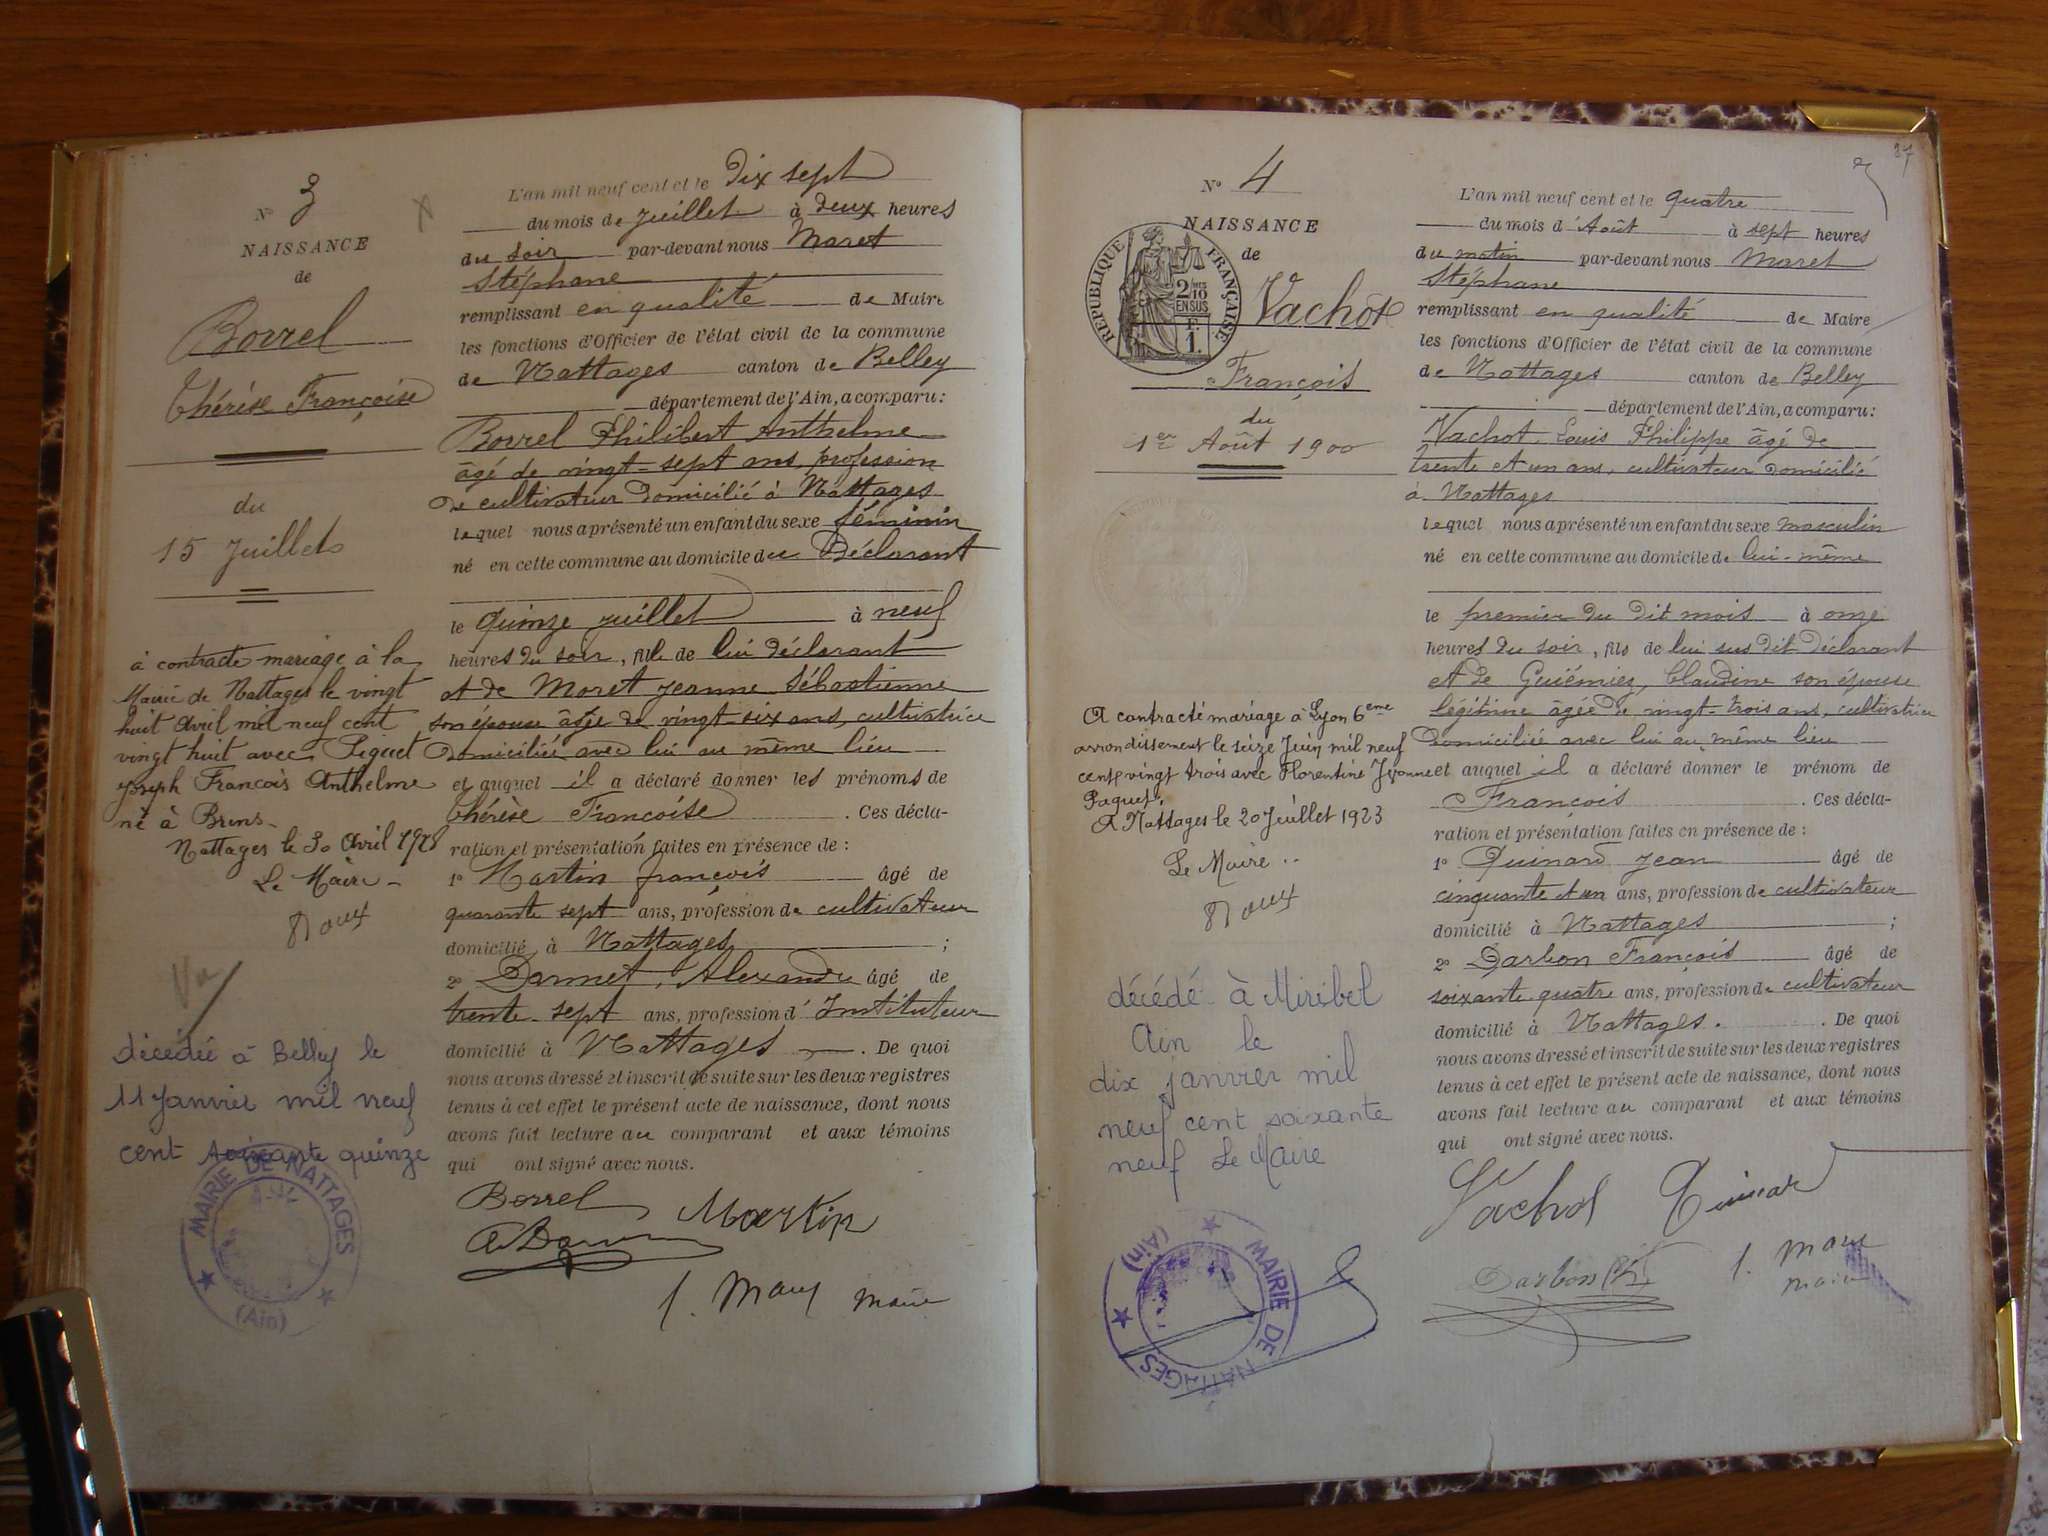 N° 3
NAISSANCE
de
Borrel
Thérèse Françoise
du
15 Juillet
à contracté mariage à la
Mairie de Nattages le vingt
huit Avril mil neuf cent
vingt huit avec Piguet
Joseph François Anthelme
né à Brens
Nattages le 30 Avril 1928
Le Maire
Roux
décédée à Belley le
11 Janvier mil neuf
cent soixante quinze
MAIRIE DE NATTAGES
(Ain)
L'an mil neuf cent et le dix sept
du mois de Juillet à deux heures
du soir par-devant nous Maret
Stéphane
remplissant en qualité de Maire
les fonctions d'Officier de l'état civil de la commune
de Nattages canton de Belley
département de l'Ain, a comparu :
Borrel Philibert Anthelme
âgé de vingt-sept ans, profession
de cultivateur domicilié à Nattages
lequel nous a présenté un enfant du sexe féminin
né en cette commune au domicile du Déclarant
le quinze juillet à neuf
heures du soir, fille de lui déclarant
et de Moret Jeanne Sébastienne
son épouse âgée de vingt-six ans, cultivatrice
domiciliée avec lui au même lieu
et auquel il a déclaré donner les prénoms de
Thérèse Françoise . Ces décla-
ration et présentation faites en présence de :
1° Martin françois âgé de
quarante sept ans, profession de cultivateur
domicilié à Nattages ;
2° Dannet, Alexandre âgé de
trente-sept ans, profession d'Instituteur
domicilié à Nattages . De quoi
nous avons dressé et inscrit de suite sur les deux registres
tenus à cet effet le présent acte de naissance, dont nous
avons fait lecture au comparant et aux témoins
qui ont signé avec nous.
Borrel Martin
S. Maret maire
37
N° 4
NAISSANCE
de
REPUBLIQUE FRANÇAISE
2/10 EN SUS
1.
Vachot
François
du
1er Août 1900
A contracté mariage à Lyon 6eme
arrondissement le seize Juin mil neuf
cent vingt trois avec Florentine Yvonne
Paquet.
A Nattages le 20 Juillet 1923
Le Maire
Roux
décédé à Miribel
Ain le
dix janvier mil
neuf cent soixante
neuf Le Maire
MAIRIE DE NATTAGES
(Ain)
L'an mil neuf cent et le quatre
du mois d'Août à sept heures
du matin par-devant nous Maret
Stéphane
remplissant en qualité de Maire
les fonctions d'Officier de l'état civil de la commune
de Nattages canton de Belley
département de l'Ain, a comparu :
Vachot Louis Philippe âgé de
trente et un ans, cultivateur domicilié
à Nattages
lequel nous a présenté un enfant du sexe masculin
né en cette commune au domicile de lui-même
le premier du dit mois à onze
heures du soir, fils de lui sus dit Déclarant
et de Guiémiez, Claudine son épouse
légitime âgée de vingt-trois ans, cultivatrice
domiciliée avec lui au même lieu
et auquel il a déclaré donner le prénom de
François . Ces décla-
ration et présentation faites en présence de :
1° Quinard Jean âgé de
cinquante et un ans, profession de cultivateur
domicilié à Nattages ;
2° Darbon François âgé de
soixante quatre ans, profession de cultivateur
domicilié à Nattages . De quoi
nous avons dressé et inscrit de suite sur les deux registres
tenus à cet effet le présent acte de naissance, dont nous
avons fait lecture au comparant et aux témoins
qui ont signé avec nous.
Vachot Quinard
Darbon
S. Maret
maire